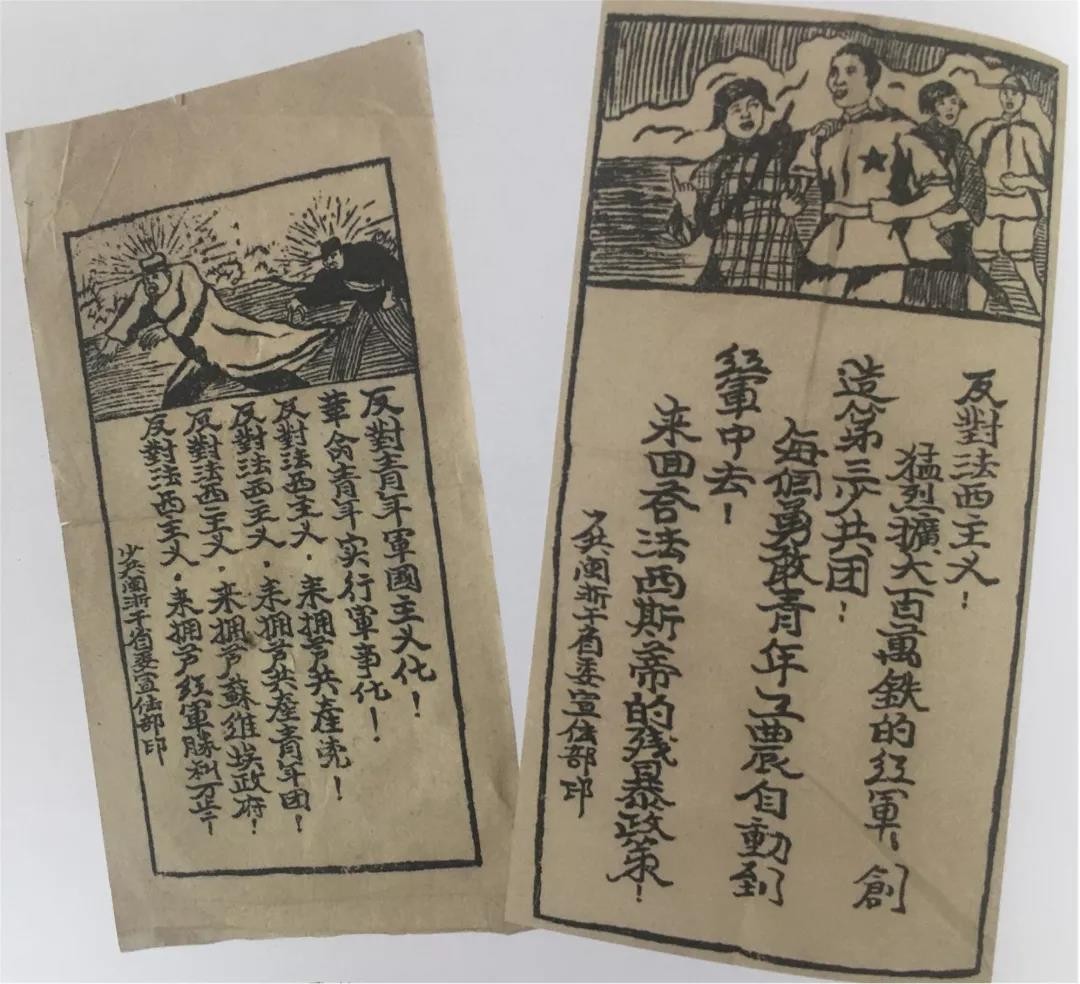 反對青年軍國主义化！
革命青年实行軍事化！
反對法西主义．来拥护共產党！
反對法西主义．来拥护共產青年团！
反對法西主义．来拥护蘇維埃政府！
反對法西主义．来拥护红軍勝利万岁！
少共闽浙干省委宣伝部印
反對法西主义！
猛烈擴大百萬鉄的红軍！創
造第三少共团！
每個勇敢青年工農自動到
红軍中去！
来回答法西斯蒂的残暴政策！
少共闽浙干省委宣伝部印